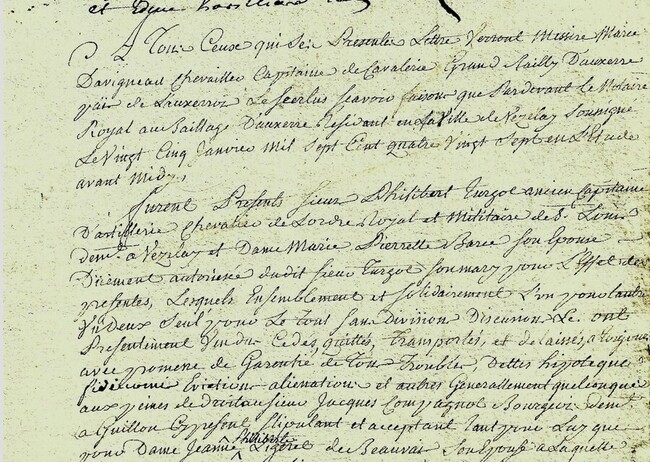 et Edme
A Tous Ceux qui Ses Presente Lettre Verront Messire Marie
Davigneau Chevaillier Capitaine de Cavalerie Grand Bailly Dauxerre
paÿs de Lauxerrois Le Scel Scavoir faisons que Pardevant Le Notaire
Royal au Baillage Dauxerre Residant en la Ville de Vezelay Soussigné
Le Vingt Cinq Janvier Mil Sept Cent quatre Vingt Sept en L'Etude
avant Midy,
furent Presents sieur Philibert Turgot ancien Capitaine
D'artillerie Chevalier de Lordre Royal et Militaire de St Louis
demt a Vezelay et Dame Marie Pierrette Son Epouse
autorisée dudit sieur Turgot son mary pour L'Effet des
presentes, Lesquels Ensemblement et solidairement L'un pour Lautre
Un Deux Seul pour Le tout sans Division Discusion Le ont
Presentement Vendu Cedes, quittés, Transportés, et delaissé a toujours
avec promesse de Garantie de Tous Troubles, Dettes hippoteque
fideicomie Eviction alienation et autres Generallement quelconque
aux peines de droit au sieur Jacques Compagnot Bourgeois demt
a Guillon Cy present Stipulant et acceptant tant pour Luy que
philiberte
pour Dame Jeanne de Beauvais son Epouse a Laquelle